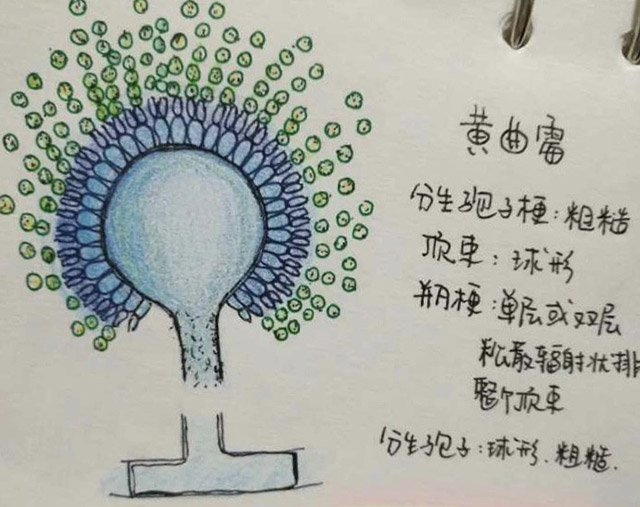 黄曲霉
分生孢子梗:粗糙
顶束:球形
梗:单层或双层
松散辐射状排
整个顶束
分生孢子:球形、粗糙.